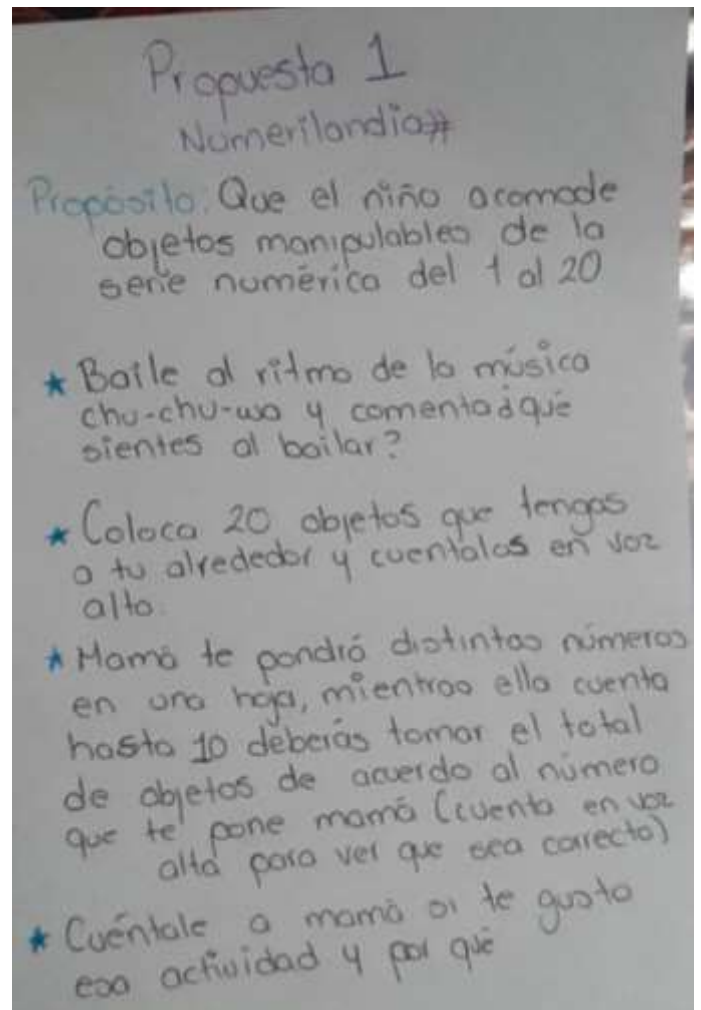 Propuesta 1
Numerilandia#
Propósito: Que el niño acomode
objetos manipulables de la
serie numérica del 1 al 20
★ Baile al ritmo de la música
chu-chu-wa y comenta ¿qué
sientes al bailar?
★ Coloca 20 objetos que tengas
a tu alrededor y cuentalos en voz
alta.
★ Mamá te pondrá distintos números
en una hoja, mientras ella cuenta
hasta 10 deberás tomar el total
de objetos de acuerdo al número
que te pone mamá (cuenta en voz
alta para ver que sea correcto)
★ Cuéntale a mamá si te gusto
esa actividad y por qué